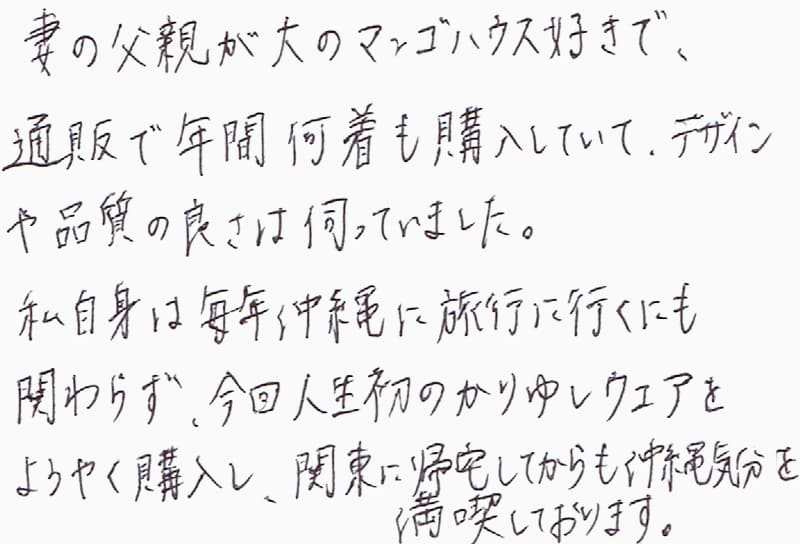 妻の父親が大のマンゴハウス好きで、
通販で年間何着も購入していて、デザイン
や品質の良さは伺っていました。
私自身は毎年沖縄に旅行に行くにも
関わらず、今回人生初のかりゆしウェアを
ようやく購入し、関東に帰宅してからも沖縄気分を
満喫しております。